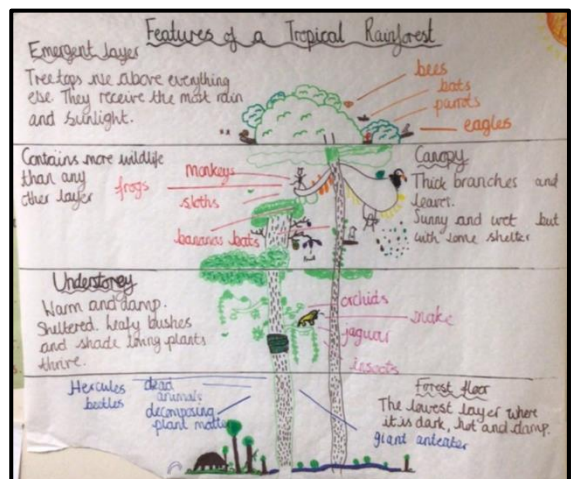 Features of a Tropical Rainforest
Emergent layer
Tree tops live above everything
else They receive the most rain
and sunlight.
bees
bats
parrots
eagles
Contains more wildlife
than any
other layer
frogs
monkeys
sloths
bananas bats
Canopy
Thick branches and
leaves.
Sunny and wet but
with some shelter
Understorey
Warm and damp.
Sheltered. Leafy bushes
and shade loving plants
thrive.
orchids
snake
jaguar
insects
Hercules
beetles
dead
animals
decomposing
plant matter
Forest floor
The lowest layer where
it is dark, hot and damp.
giant anteater